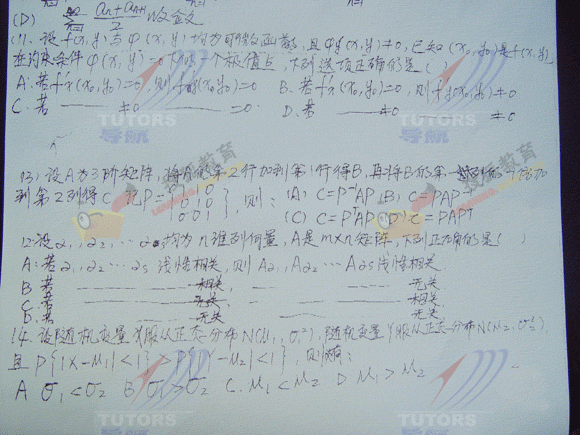 (D) ∑ (an+an+1)/2 收敛
(11. 设f(x,y)与φ(x,y)均为可微函数, 且φ'y(x,y)≠0, 已知(x0,y0)是f(x,y)
在约束条件φ(x,y)=0下的一个极值点, 下列选项正确的是( )
A. 若f'x(x0,y0)=0, 则f'y(x0,y0)=0 B. 若f'x(x0,y0)=0, 则f'y(x0,y0)≠0
C. 若 —— ≠0 —— =0. D. 若 —— ≠0 —— ≠0
13) 设A为3阶矩阵, 将A的第2行加到第1行得B, 再将B的第一列的
到第2列得C 记P= 1 1 0
0 1 0
0 0 1 , 则: (A) C=P⁻¹AP (B) C=PAP⁻¹
(C) C=PᵀAP (D) C=PAPᵀ
12. 设α1, α2, … αs均为n维列向量, A是m×n矩阵, 下列正确的是( )
A. 若α1, α2 … αs 线性相关, 则Aα1, Aα2 … Aαs线性相关.
B 若 —— 相关, —— 无关.
C. 若 —— 无关, —— 相关.
D. 若 —— 无关, —— 无关.
14. 设随机变量X服从正态分布N(μ1, σ1²), 随机变量Y服从正态分布N(μ2, σ2²),
且P{|X-μ1|<1}>P{|Y-μ2|<1}, 则有:
A σ1<σ2 B σ1>σ2 C. μ1<μ2 D μ1>μ2
TUTORS
导航
教育
TUTORS
导航
TUTORS
导航
TUTORS
导航